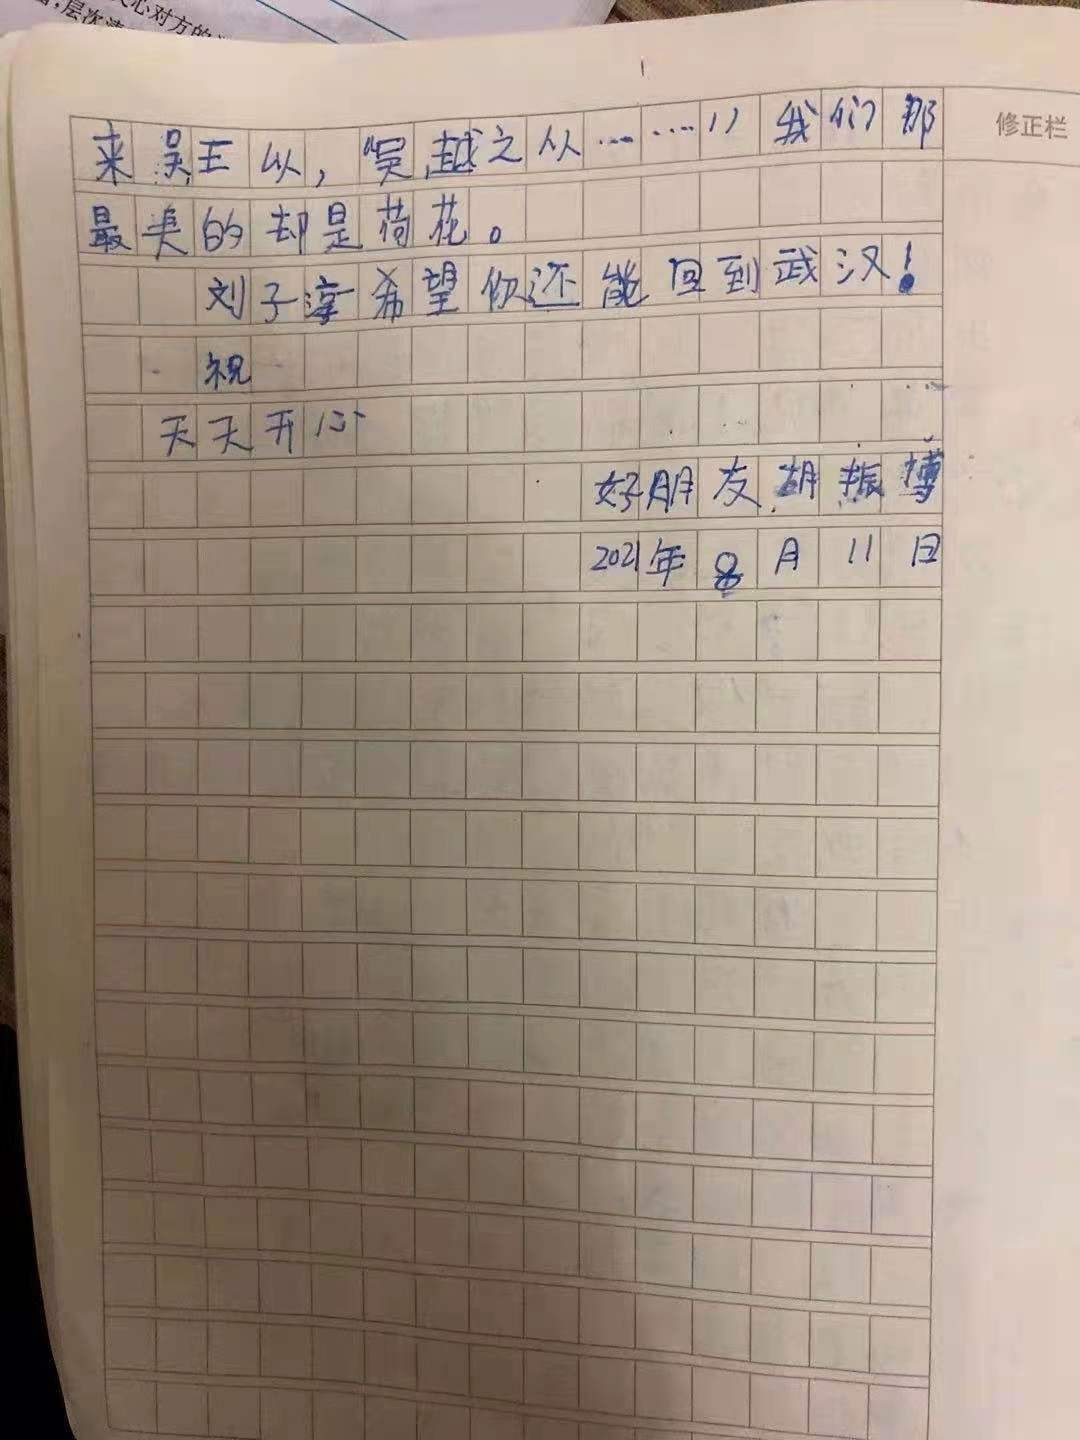 心对方的
层次清
修正栏
来吴王以,“吴越之从……”我们那
最美的却是荷花。
刘子淳希望你还能回到武汉!
祝
天天开心
好朋友胡振博
2021年8月11日